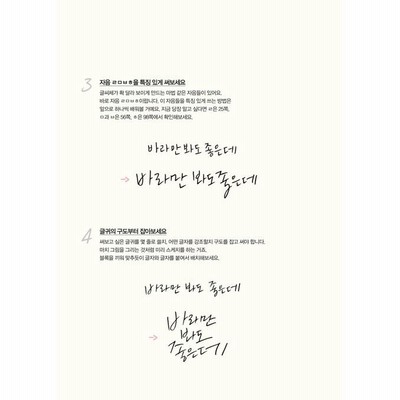 3 자음 ㄹㅁㅂㅎ을 특징 있게 써보세요
글씨체가 확 달라 보이게 만드는 마법 같은 자음들이 있어요.
바로 자음 ㄹㅁㅂㅎ이랍니다. 이 자음들을 특징 있게 쓰는 방법은
앞으로 하나씩 배워볼 거예요. 지금 당장 알고 싶다면 ㄹ은 25쪽,
ㅁ과 ㅂ은 56쪽, ㅎ은 98쪽에서 확인해보세요.
바라만 봐도 좋은데
→ 바라만 봐도 좋은데
4 글귀의 구도부터 잡아보세요
써보고 싶은 글귀를 몇 줄로 쓸지, 어떤 글자를 강조할지 구도를 잡고 써야 합니다.
마치 그림을 그리는 것처럼 미리 스케치를 하는 거죠.
블록을 끼워 맞추듯이 글자와 글자를 붙여서 배치해보세요.
바라만 봐도 좋은데
바라만
→ 봐도
좋은데